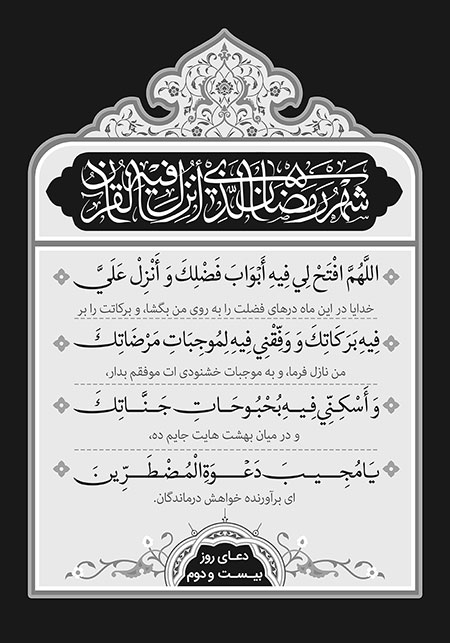 شَهْرُ رَمَضَانَ الَّذِي أُنْزِلَ فِيهِ الْقُرْآنُ
اللَّهُمَّ افْتَحْ لِي فِيهِ أَبْوَابَ فَضْلِكَ وَ أَنْزِلْ عَلَيَّ
خدایا در این ماه درهای فضلت را به روی من بگشا، و برکاتت را بر
فِيهِ بَرَكَاتِكَ وَ وَفِّقْنِي فِيهِ لِمُوجِبَاتِ مَرْضَاتِكَ
من نازل فرما، و به موجبات خشنودی ات موفقم بدار،
وَ أَسْكِنِّي فِيهِ بُحْبُوحَاتِ جَنَّاتِكَ
و در میان بهشت هایت جایم ده،
يَا مُجِيبَ دَعْوَةِ الْمُضْطَرِّينَ
ای برآورنده خواهش درماندگان.
دعای روز
بیست و دوم